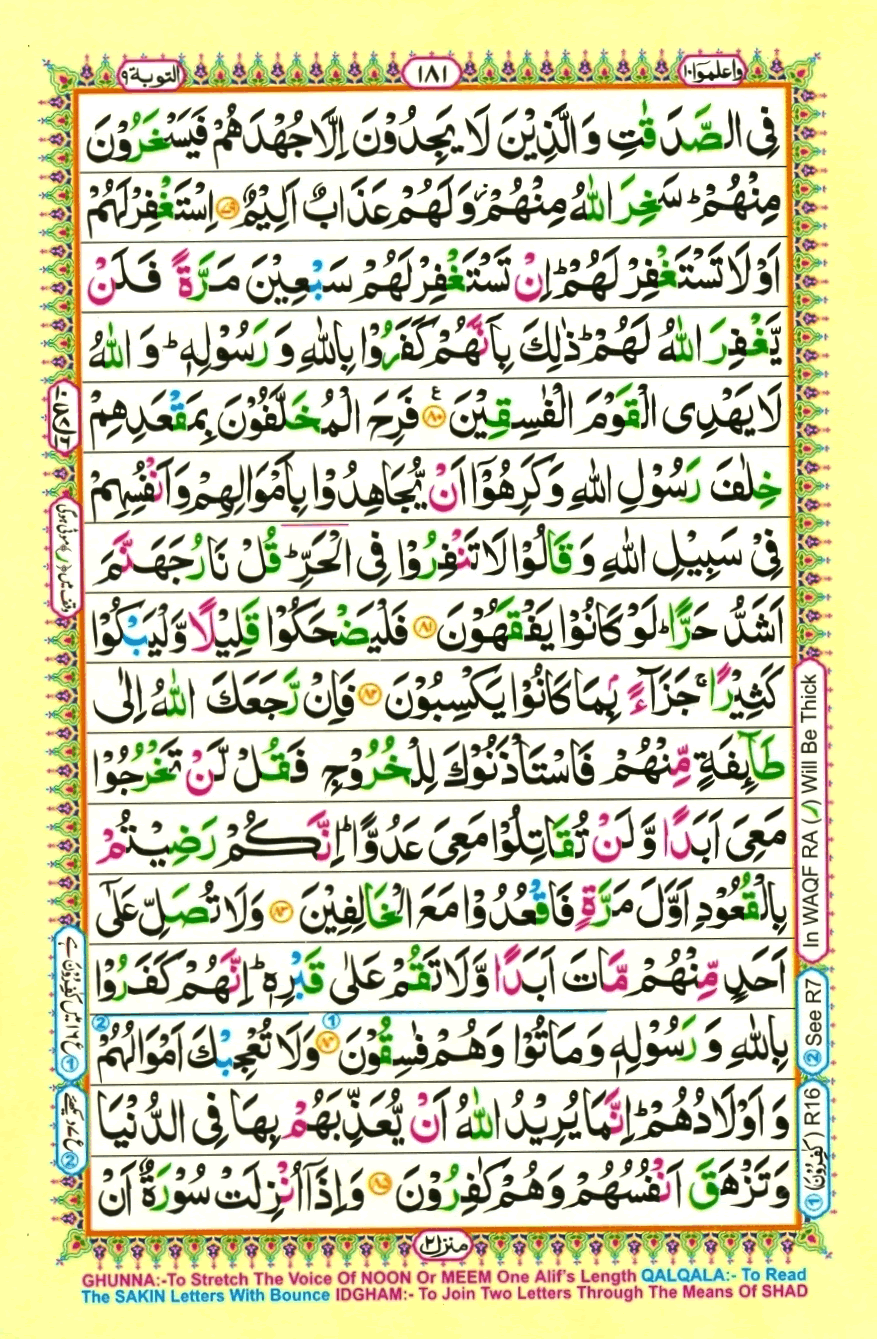 التوبة ٩
١٨١
واعلموا ١٠
فِی الصَّدَقٰتِ وَ الَّذِیْنَ لَا یَجِدُوْنَ اِلَّا جُهْدَهُمْ فَیَسْخَرُوْنَ
مِنْهُمْ ؕ سَخِرَ اللّٰهُ مِنْهُمْ ؗ وَ لَهُمْ عَذَابٌ اَلِیْمٌ ﴿۷۹﴾ اِسْتَغْفِرْ لَهُمْ
اَوْ لَا تَسْتَغْفِرْ لَهُمْ ؕ اِنْ تَسْتَغْفِرْ لَهُمْ سَبْعِیْنَ مَرَّةً فَلَنْ
یَّغْفِرَ اللّٰهُ لَهُمْ ؕ ذٰلِكَ بِاَنَّهُمْ كَفَرُوْا بِاللّٰهِ وَ رَسُوْلِهٖ ؕ وَ اللّٰهُ
لَا یَهْدِی الْقَوْمَ الْفٰسِقِیْنَ ﴿۸۰﴾ ع فَرِحَ الْمُخَلَّفُوْنَ بِمَقْعَدِهِمْ
خِلٰفَ رَسُوْلِ اللّٰهِ وَ كَرِهُوْۤا اَنْ یُّجَاهِدُوْا بِاَمْوَالِهِمْ وَ اَنْفُسِهِمْ
فِیْ سَبِیْلِ اللّٰهِ وَ قَالُوْا لَا تَنْفِرُوْا فِی الْحَرِّ ؕ قُلْ نَارُ جَهَنَّمَ
اَشَدُّ حَرًّا ؕ لَوْ كَانُوْا یَفْقَهُوْنَ ﴿۸۱﴾ فَلْیَضْحَكُوْا قَلِیْلًا وَّ لْیَبْكُوْا
كَثِیْرًا ۚ جَزَآءًۢ بِمَا كَانُوْا یَكْسِبُوْنَ ﴿۸۲﴾ فَاِنْ رَّجَعَكَ اللّٰهُ اِلٰی
طَآىِٕفَةٍ مِّنْهُمْ فَاسْتَاْذَنُوْكَ لِلْخُرُوْجِ فَقُلْ لَّنْ تَخْرُجُوْا
مَعِیَ اَبَدًا وَّ لَنْ تُقَاتِلُوْا مَعِیَ عَدُوًّا ؕ اِنَّكُمْ رَضِیْتُمْ
بِالْقُعُوْدِ اَوَّلَ مَرَّةٍ فَاقْعُدُوْا مَعَ الْخَالِفِیْنَ ﴿۸۳﴾ وَ لَا تُصَلِّ عَلٰۤی
اَحَدٍ مِّنْهُمْ مَّاتَ اَبَدًا وَّ لَا تَقُمْ عَلٰی قَبْرِهٖ ؕ اِنَّهُمْ كَفَرُوْا
بِاللّٰهِ وَ رَسُوْلِهٖ وَ مَاتُوْا وَ هُمْ فٰسِقُوْنَ ﴿۸۴﴾ وَ لَا تُعْجِبْكَ اَمْوَالُهُمْ
وَ اَوْلَادُهُمْ ؕ اِنَّمَا یُرِیْدُ اللّٰهُ اَنْ یُّعَذِّبَهُمْ بِهَا فِی الدُّنْیَا
وَ تَزْهَقَ اَنْفُسُهُمْ وَ هُمْ كٰفِرُوْنَ ﴿۸۵﴾ وَ اِذَاۤ اُنْزِلَتْ سُوْرَةٌ اَنْ
In WAQF RA (ر) Will Be Thick
② See R7
① (كٰفِرُوْنَ) R16
منزل ٢
GHUNNA:-To Stretch The Voice Of NOON Or MEEM One Alif's Length QALQALA:- To Read
The SAKIN Letters With Bounce IDGHAM:- To Join Two Letters Through The Means Of SHAD